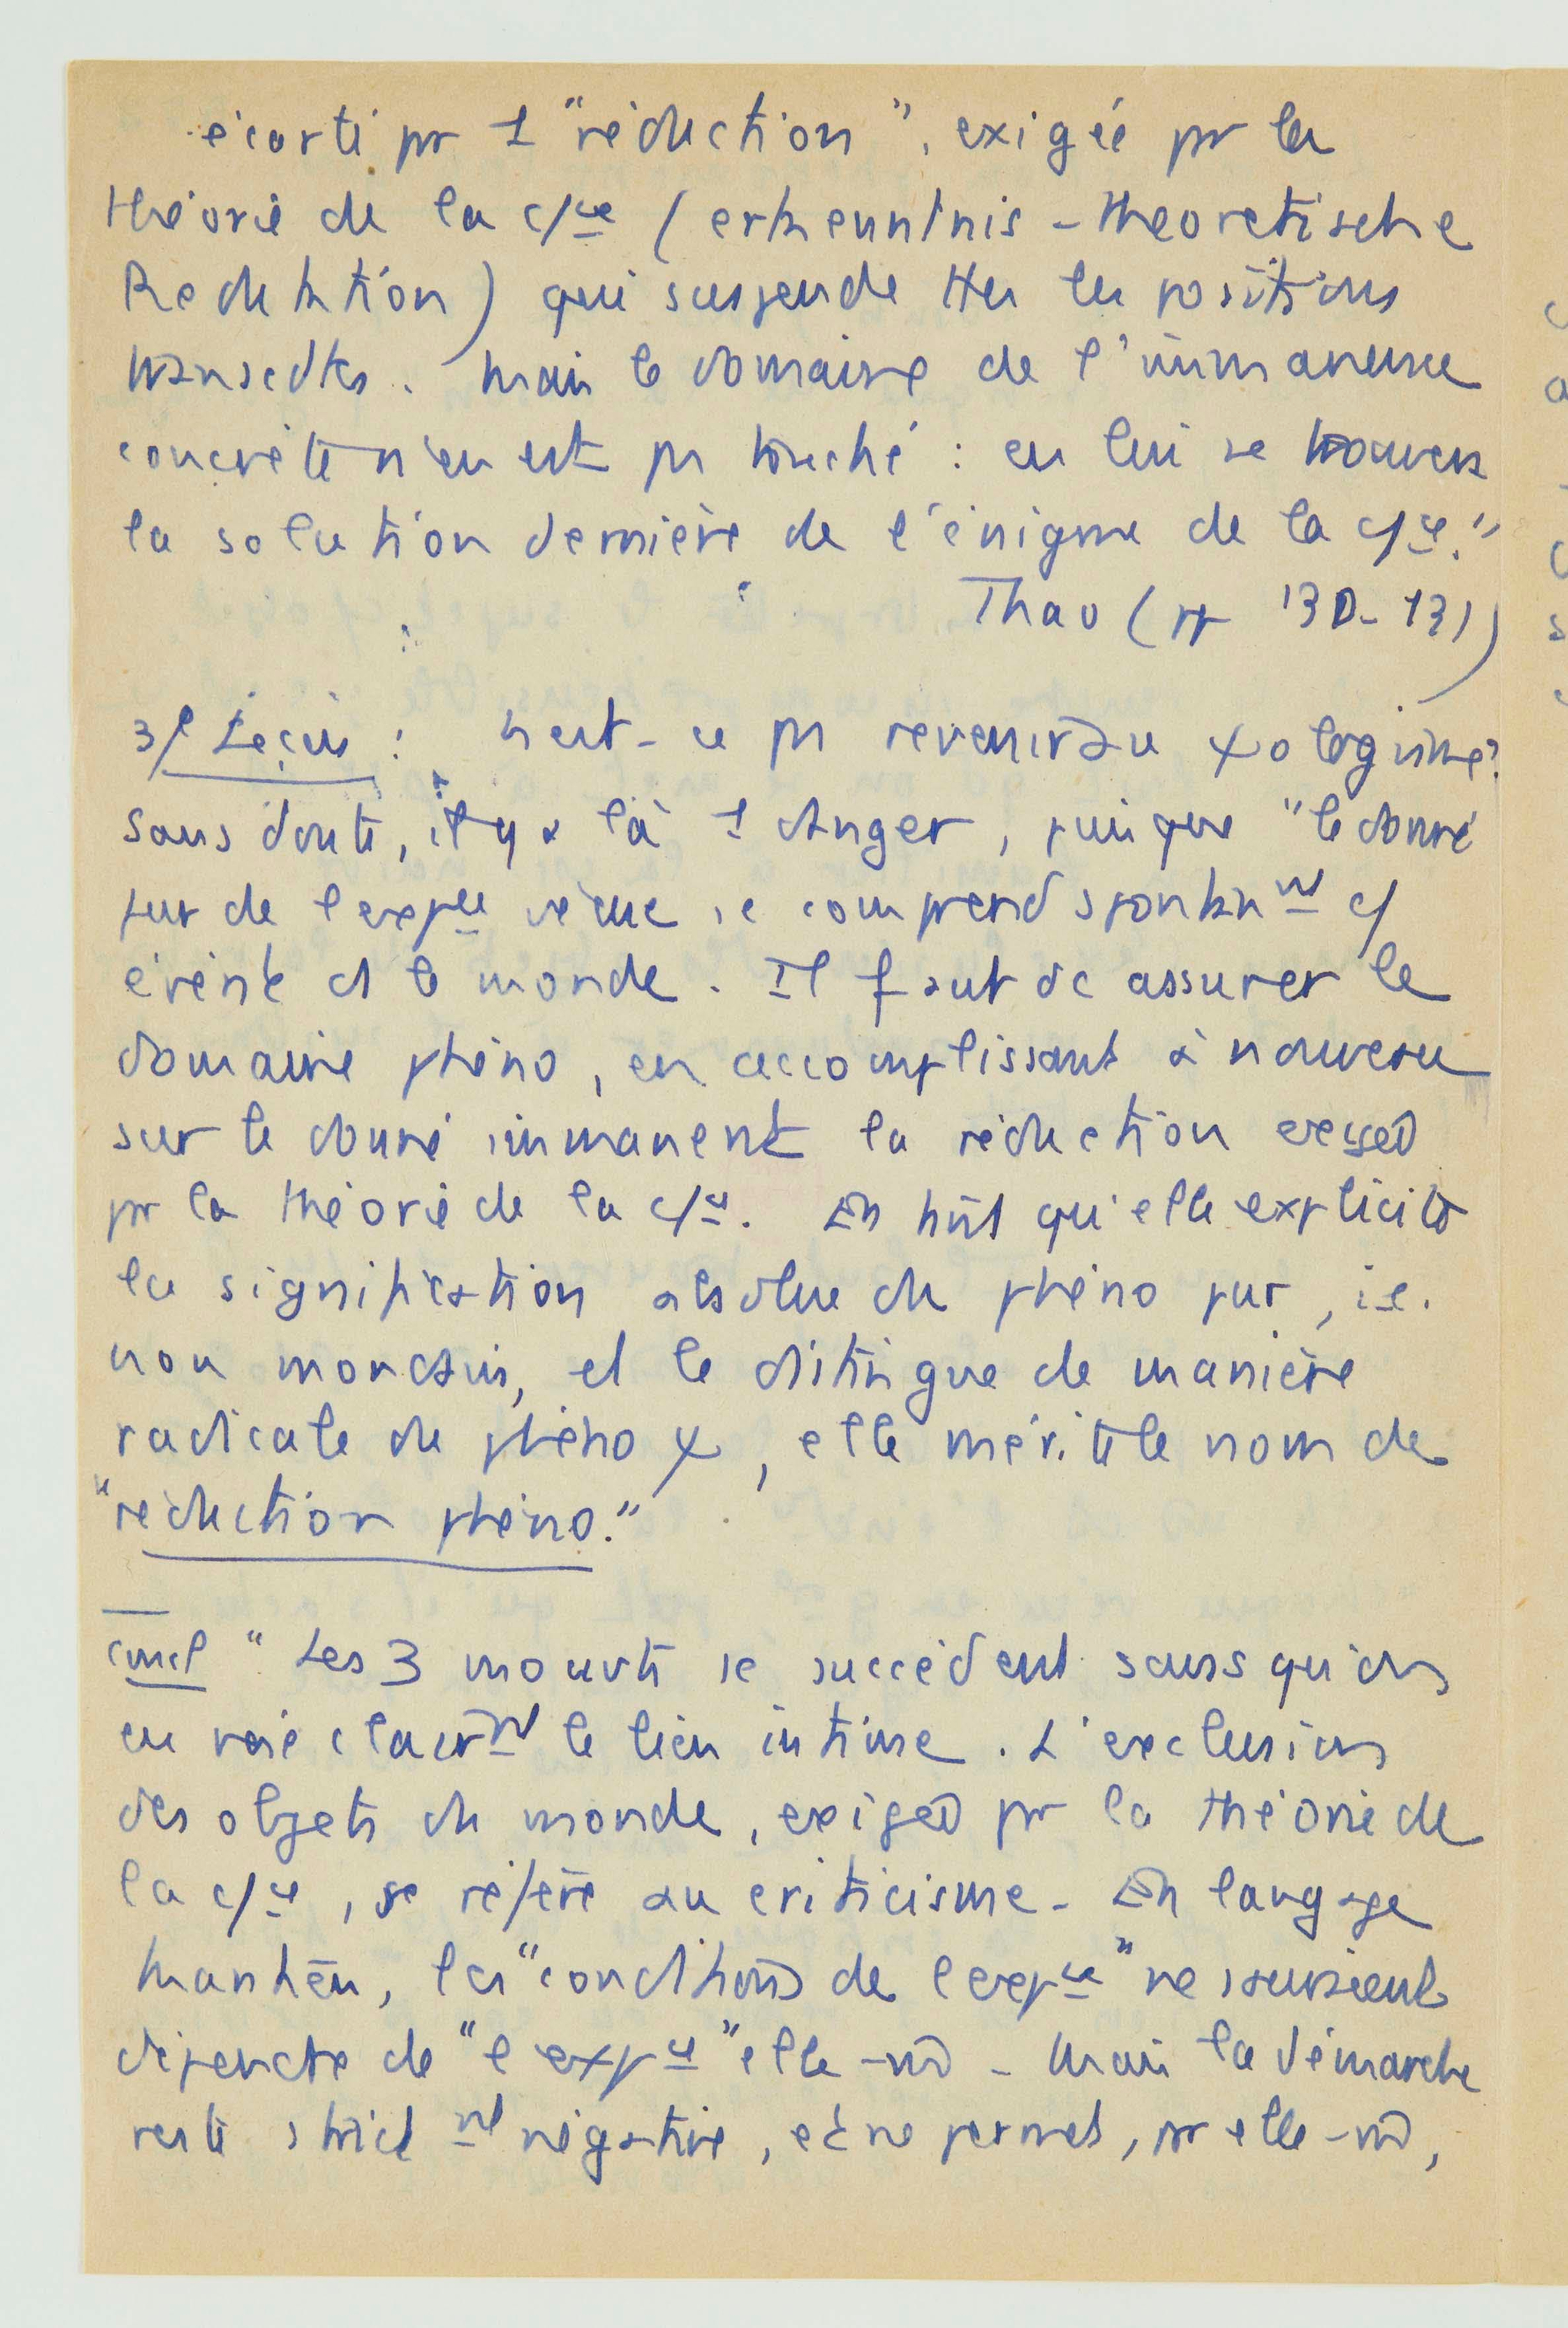 écarté pr 1 "réduction", exigée pr la
théorie de la c/ce (erkenntnis-theoretische
Reduktion) qui suspende ttes les positions
transcdtes. Mais le domaine de l'immanence
concrète n'en est pas touché : en lui se trouvera
la solution dernière de l'énigme de la c/ce."
Thao (pp 130-131)
3/ Leçon : n'est-ce pas revenir au ψologisme?
Sans doute, il y a là 1 danger, puisque "le donné
pur de l'expce vécue se comprend spontanmt c/
évènt ds le monde. Il faut dc assurer le
domaine phéno, en accomplissant à nouveau
sur le donné immanent la réduction exigée
pr la théorie de la c/ce. En tant qu'elle explicite
la signification absolue du phéno pur, i.e.
non mondain, et le distingue de manière
radicale du phéno ψ, elle mérite le nom de
"réduction phéno."
Concl "Les 3 mouvts se succèdent sans qu'on
en voie clairmt le lien intime. L'exclusion
des objets du monde, exigée pr la théorie de
la c/ce, se réfère au criticisme - En langage
kantien, les "conditions de l'expce" ne sauraient
dépendre de "l'expce" elle-m̂ - Mais la démarche
reste strictmt négative, et ne permet, pr elle-m̂,